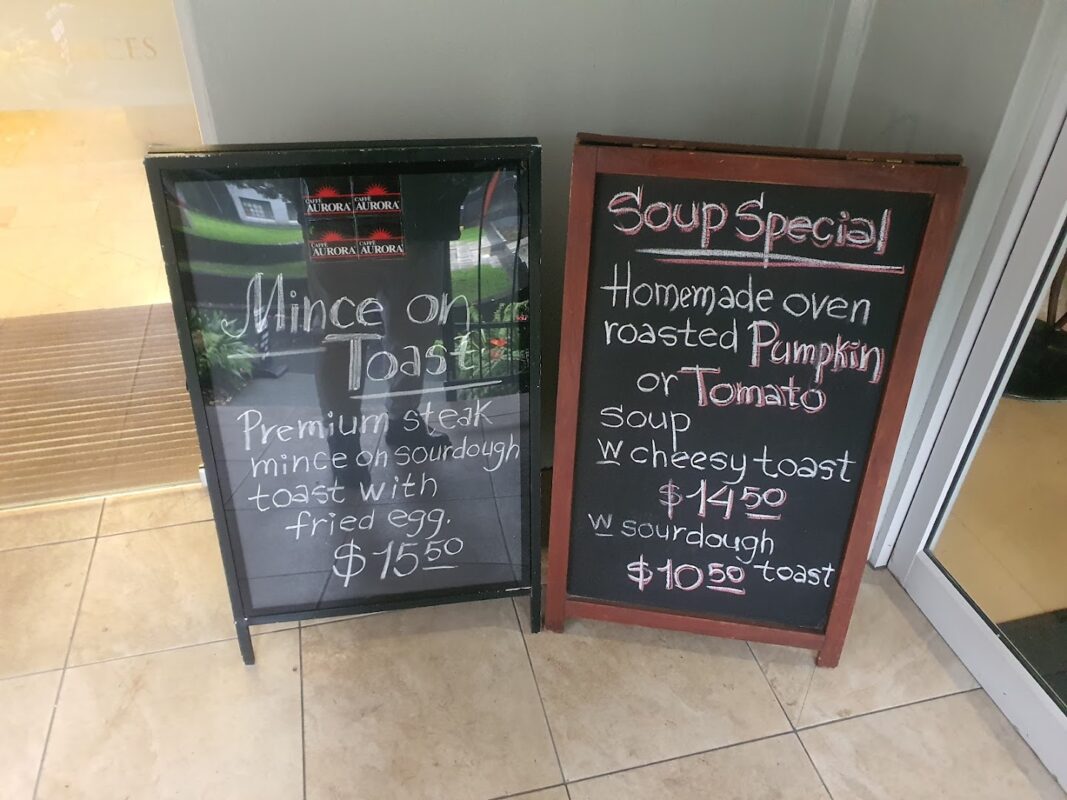 CES
CAFFÈ CAFFÈ
AURORA AURORA
CAFFÈ CAFFÈ
AURORA AURORA
Mince on
Toast
Premium steak
mince on sourdough
toast with
fried egg.
$15.50
Soup Special
Homemade oven
roasted Pumpkin
or Tomato
soup
w cheesy toast
$14.50
w sourdough
$10.50 toast